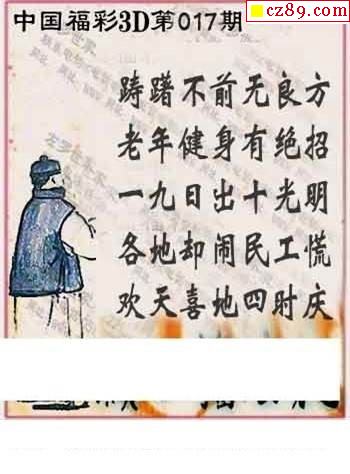 cz89.com
中国福彩3D第017期
踌躇不前无良方
老年健身有绝招
一九日出十光明
各地却闹民工慌
欢天喜地四时庆